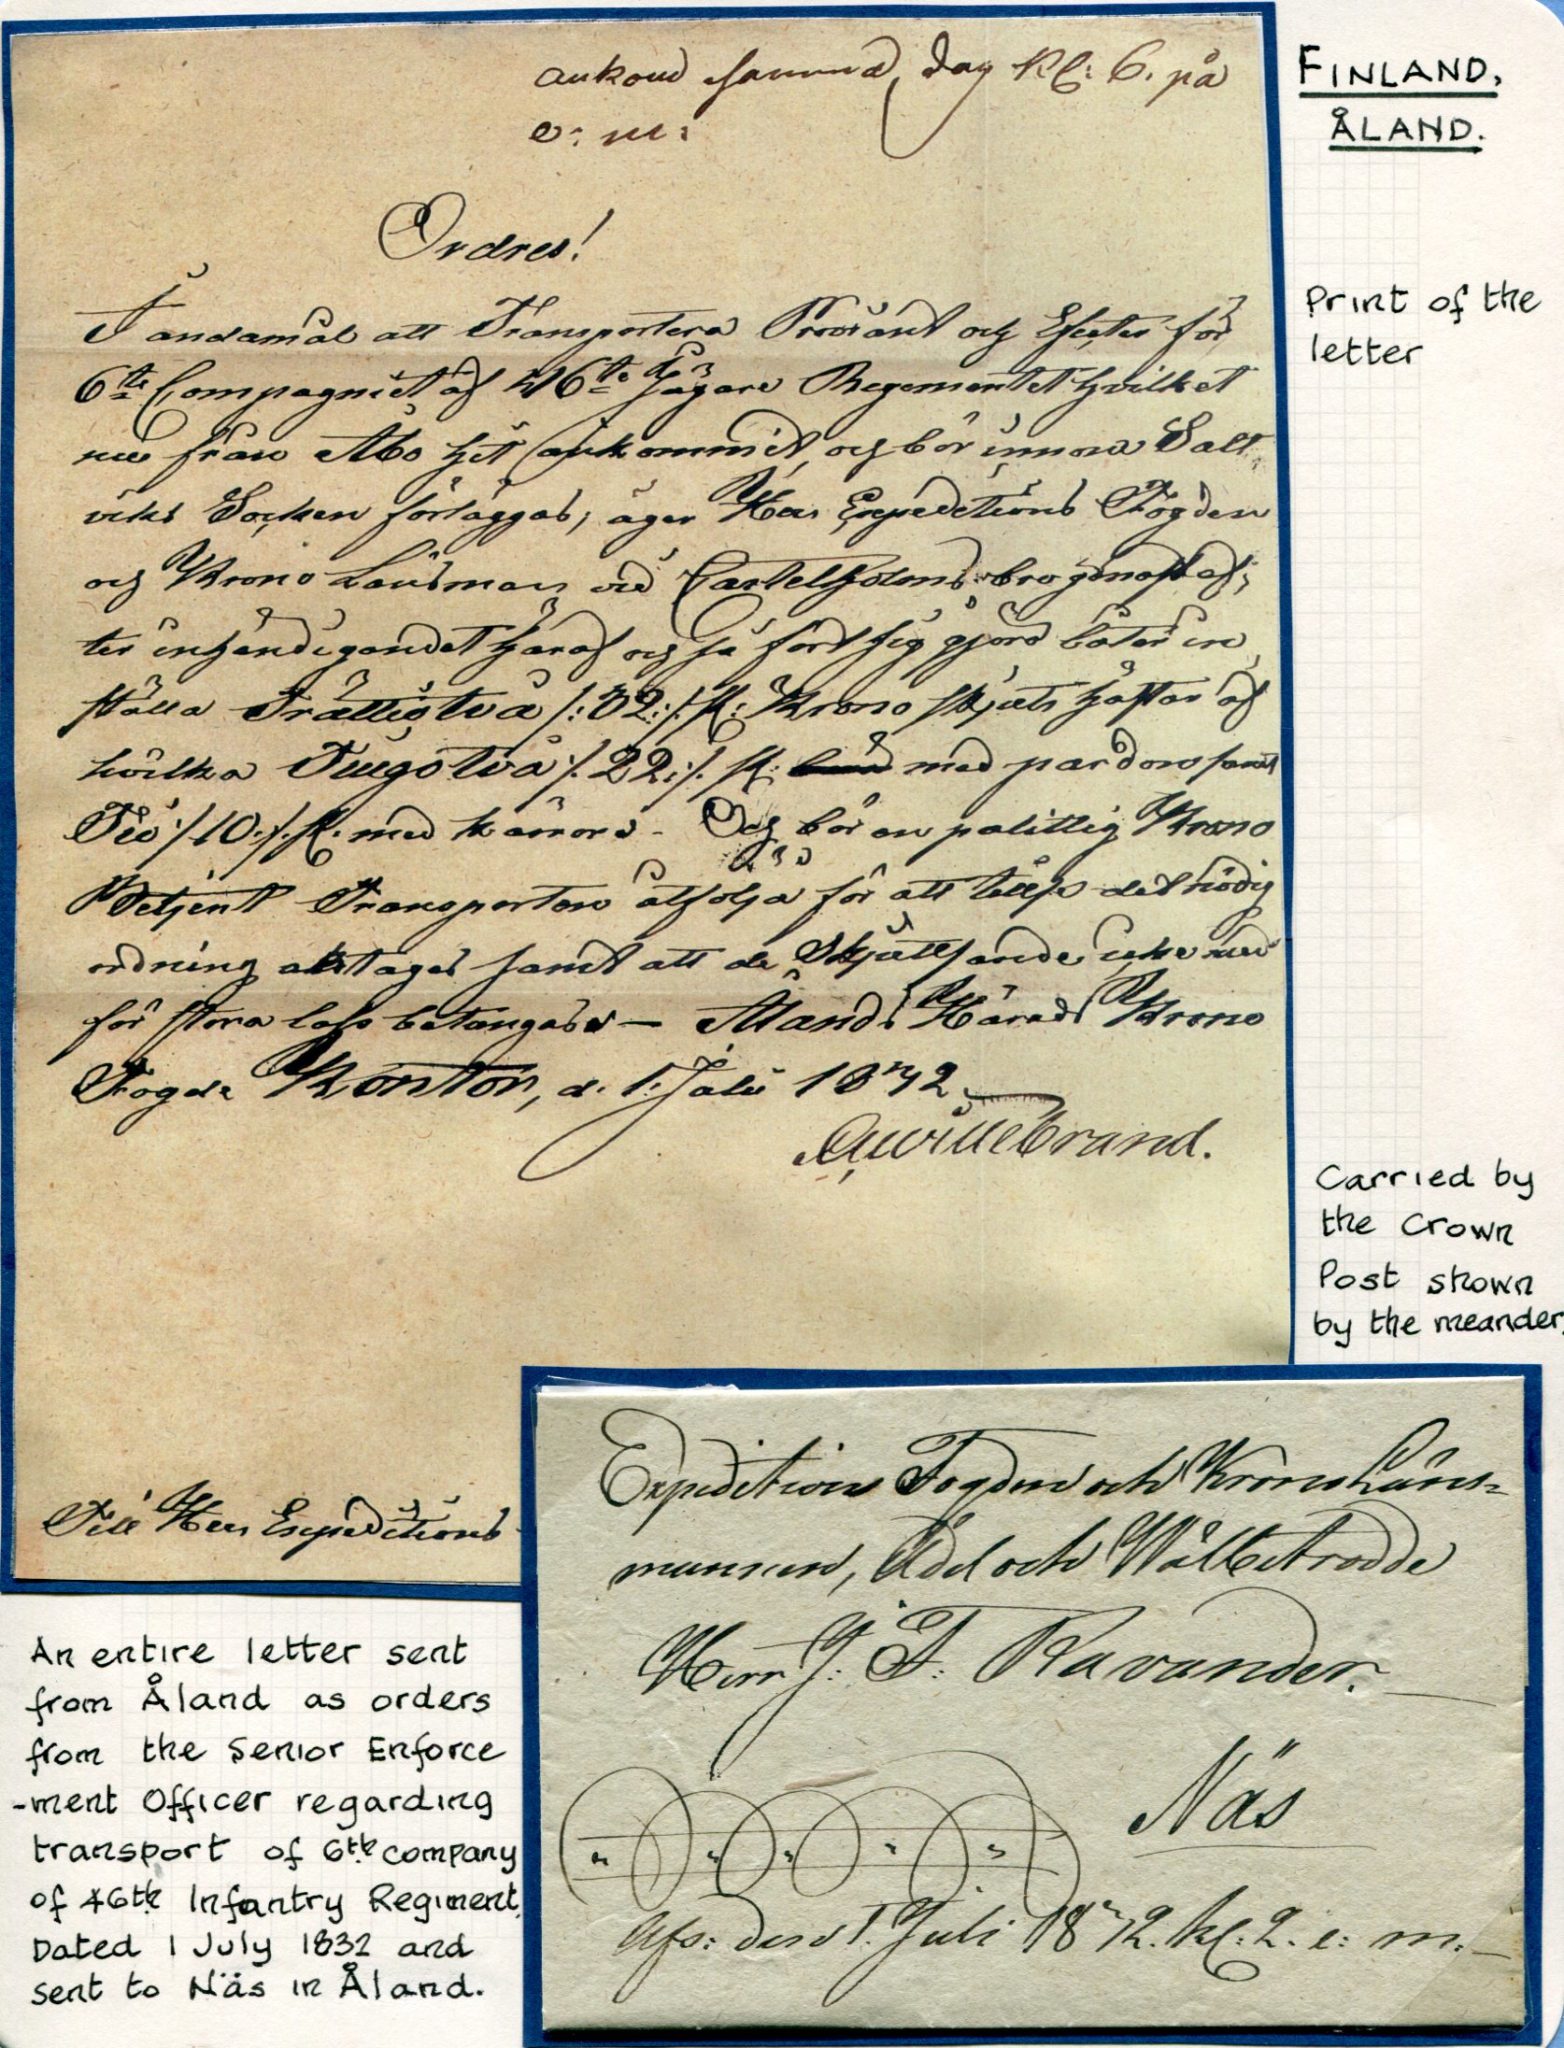 ankom samma dag Kl: 6. på
e: m:
FINLAND.
ÅLAND.
Ordres!
Print of the
letter
I andamål att Transportera Proviant och Efecter för
6te Compagniet af 46te Jägare Regementet hvilket
nu från Åbo hit ankommit, och bör innom Salt
viks Socken förläggas, äger Herr Expeditions Fogden
och Krono Länsman vid Castelholms bro genast ef-
ter inhändigandet häraf och så fort sig gjöra låter in
ställa Trättiotvå /:32:/ st: Krono skjuts hästar af
hvilka Tiugotvå /:22:/ st: med par don samt
Tio /:10:/ st. med kärror - Och bör en polittig Krono
Betjent Transporten åtfölja för att tillse det nödig
ordning iakttages samt att de Skjuttsande icke med
för stora lass betungas - Ålands Härads Krono
Fogde Kontor, d. 1. Juli 1832.
Willebrand.
Carried by
the Crown
Post shown
by the meander.
Till Herr Expeditions
Expeditions Fogden och Krono Läns-
mannen, Ädel och Wälbetrodde
Herr J: F: Ravander.
Näs
Afs: den 1. Juli 1832. kl. 2. e: m:
An entire letter sent
from Åland as orders
from the Senior Enforce
-ment Officer regarding
transport of 6th company
of 46th Infantry Regiment.
Dated 1 July 1832 and
sent to Näs in Åland.